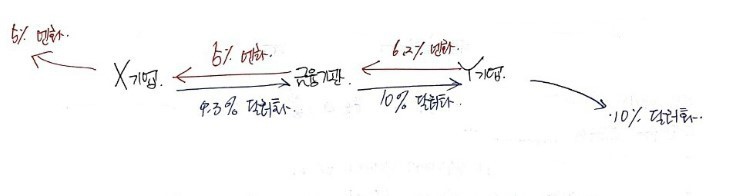 5% 엔화.
5% 엔화.
6.2% 엔화.
X기업.
금융기관.
Y기업.
9.3% 달러화.
10% 달러화.
10% 달러화.